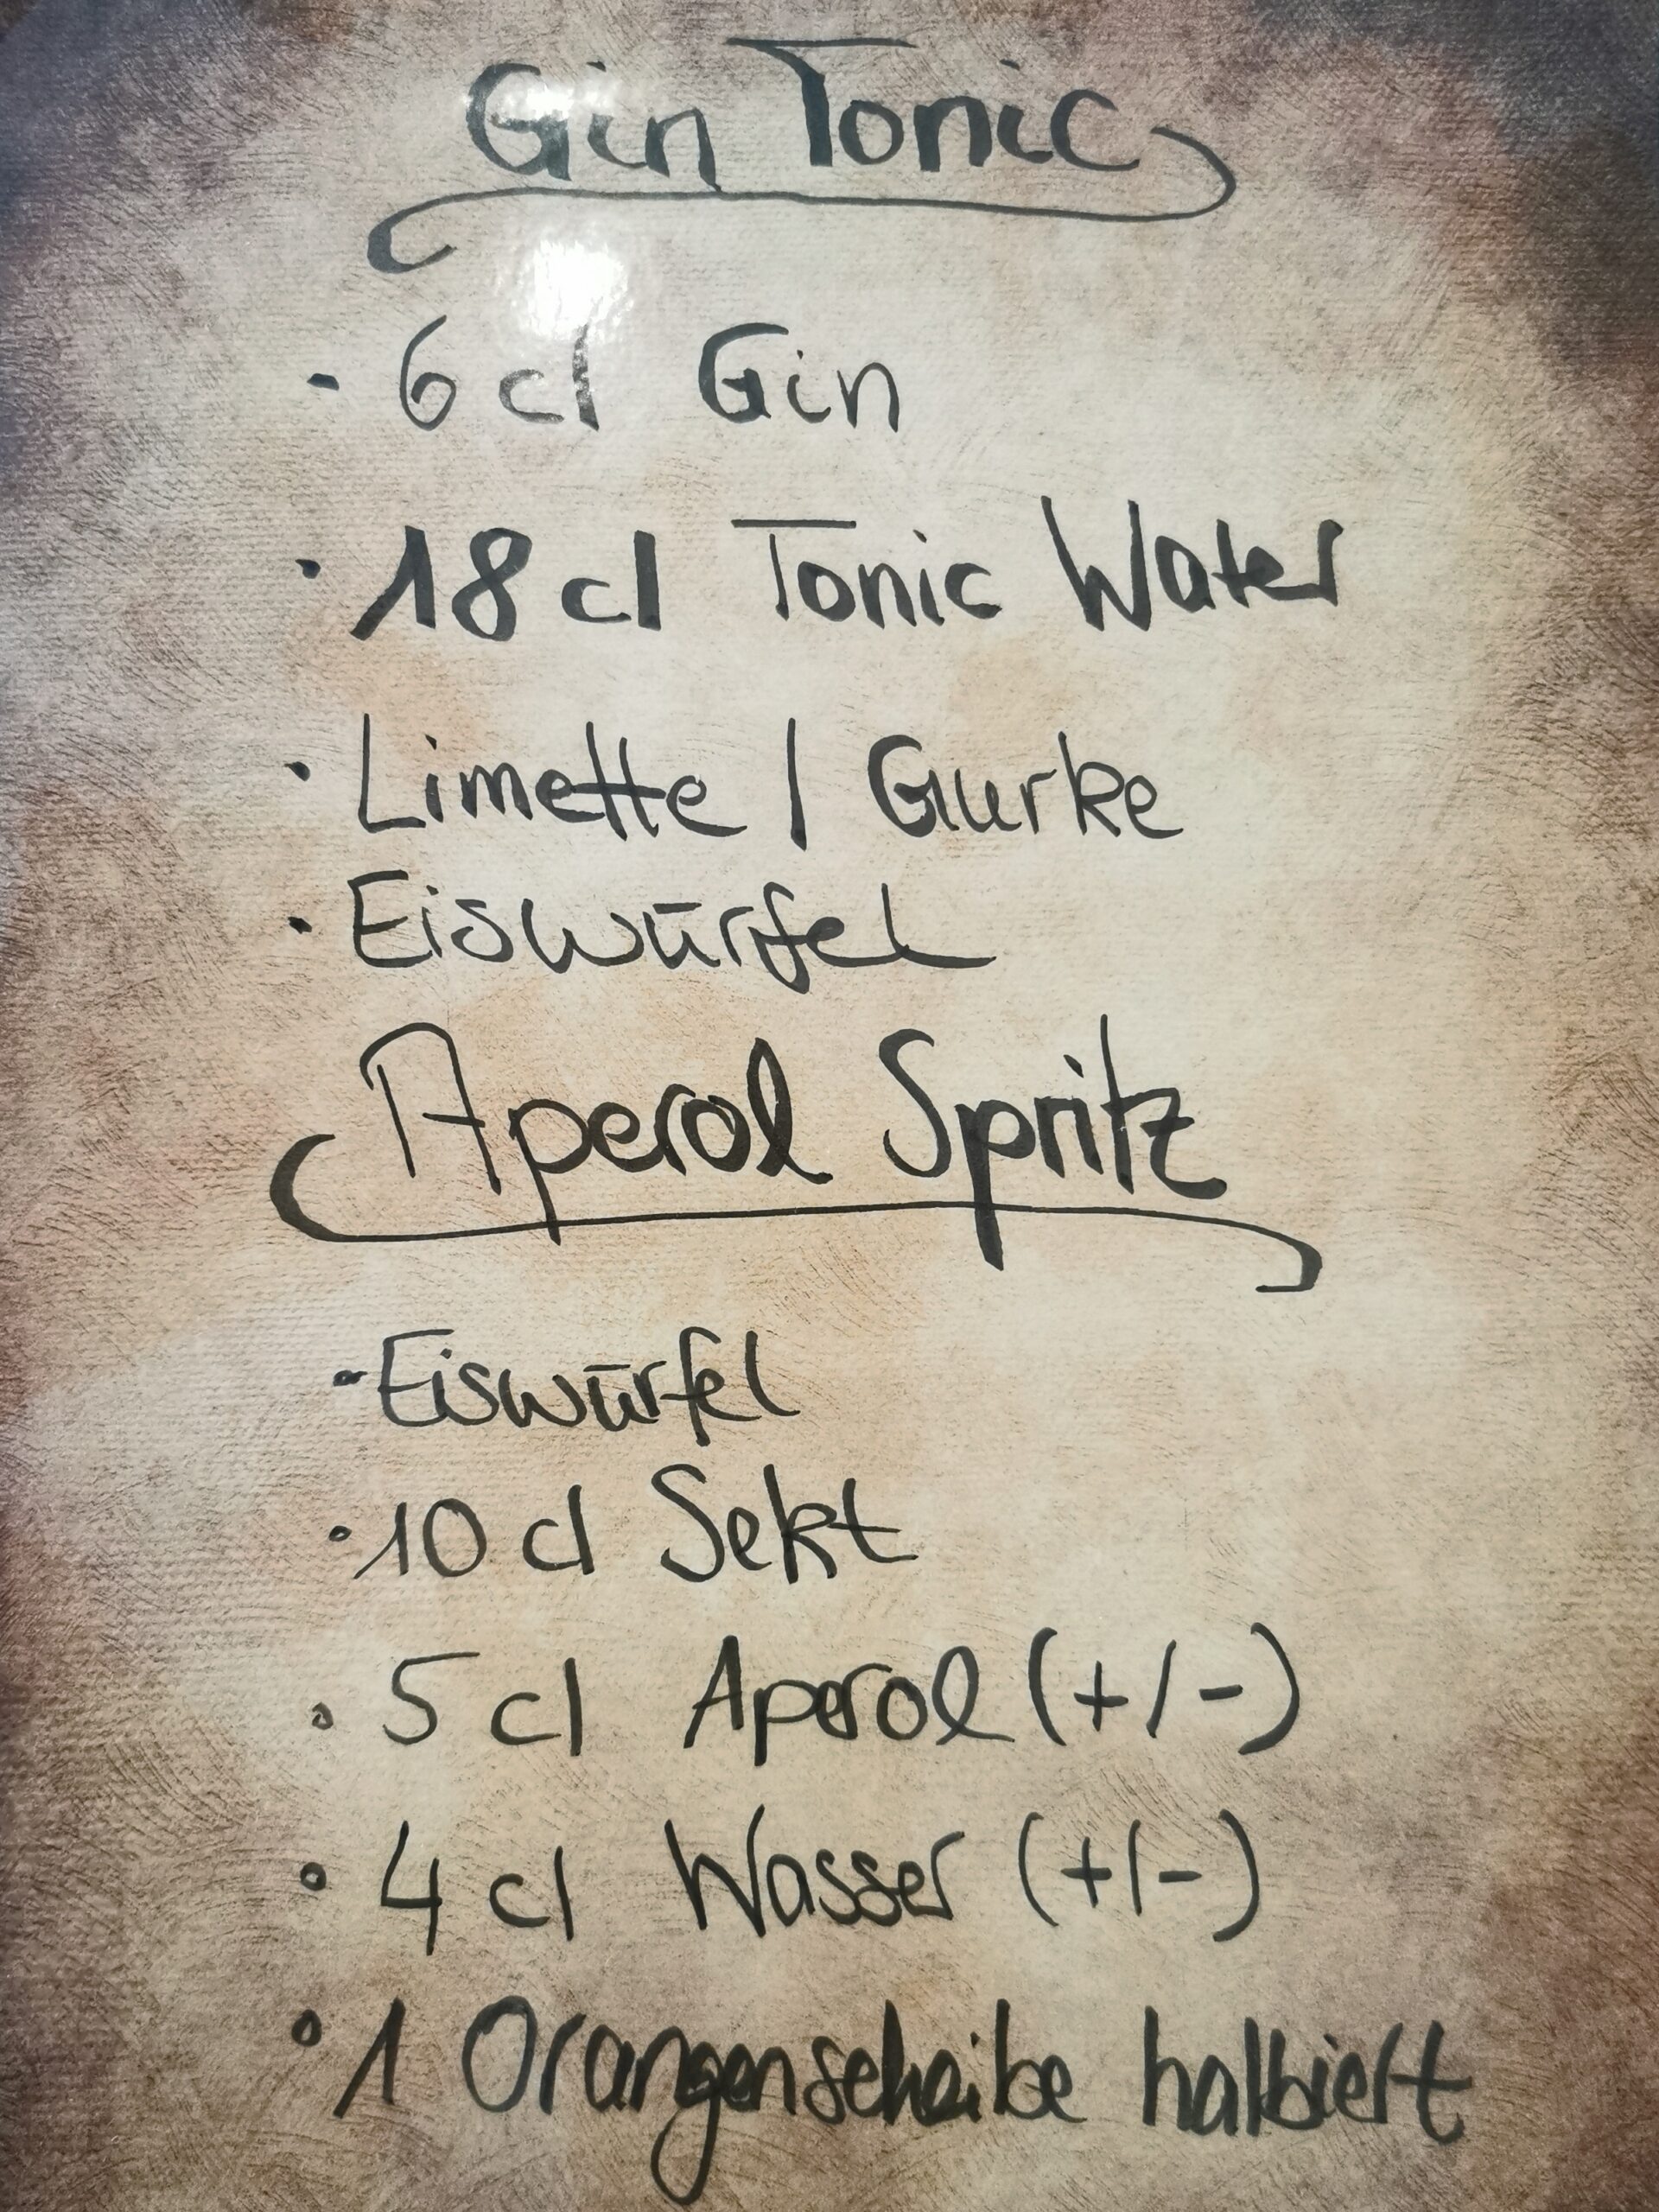 Gin Tonic
- 6 cl Gin
· 18 cl Tonic Water
· Limette / Gurke
· Eiswürfel
Aperol Spritz
- Eiswürfel
· 10 cl Sekt
· 5 cl Aperol (+/-)
· 4 cl Wasser (+/-)
· 1 Orangenscheibe halbiert